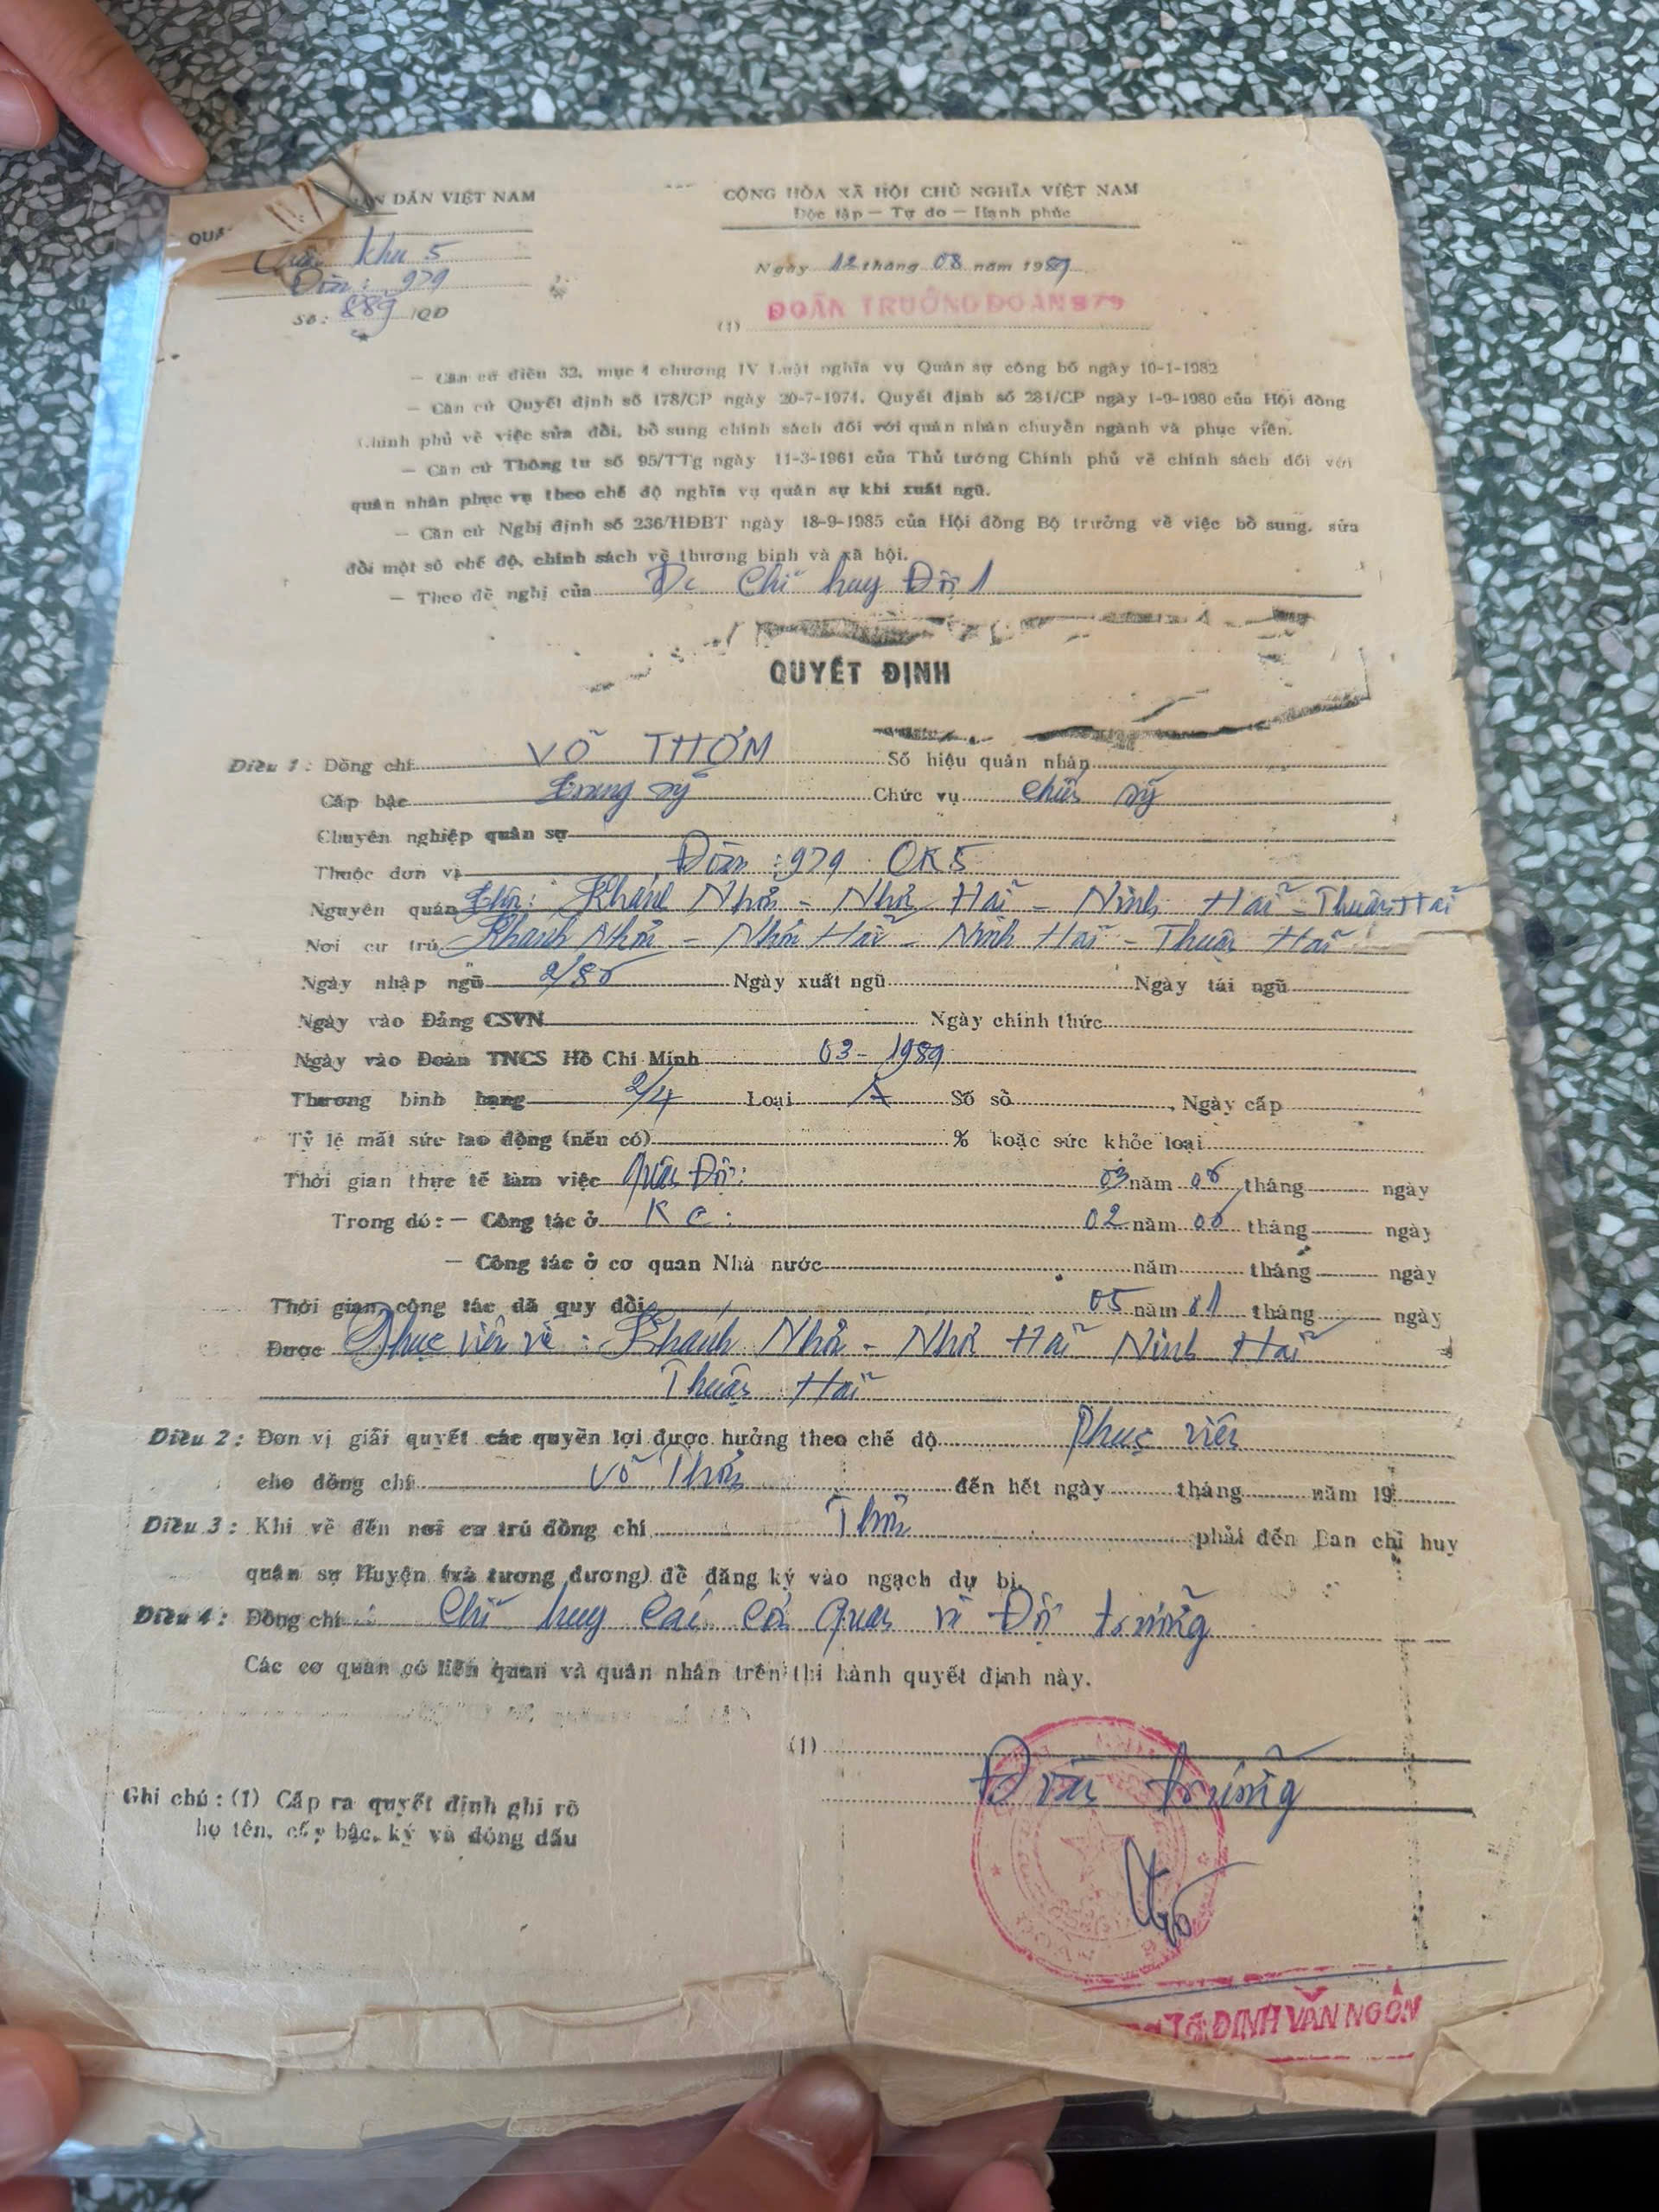 QUÂN DÂN VIỆT NAM
CỘNG HÒA XÃ HỘI CHỦ NGHĨA VIỆT NAM
Độc lập — Tự do — Hạnh phúc
Quân khu 5
Đoàn: 979
Số: 889 /QĐ
Ngày 12 tháng 08 năm 1989
(1) ĐOÀN TRƯỞNG ĐOÀN 979
— Căn cứ điều 32, mục 4 chương IV Luật nghĩa vụ Quân sự công bố ngày 10-1-1982
— Căn cứ Quyết định số 178/CP ngày 20-7-1974, Quyết định số 281/CP ngày 1-9-1980 của Hội đồng
Chính phủ về việc sửa đổi, bổ sung chính sách đối với quân nhân chuyển ngành và phục viên.
— Căn cứ Thông tư số 95/TTg ngày 11-3-1961 của Thủ tướng Chính phủ về chính sách đối với
quân nhân phục vụ theo chế độ nghĩa vụ quân sự khi xuất ngũ.
— Căn cứ Nghị định số 236/HĐBT ngày 18-9-1985 của Hội đồng Bộ trưởng về việc bổ sung, sửa
đổi một số chế độ, chính sách về thương binh và xã hội.
— Theo đề nghị của Đc Chỉ huy Đội 1
QUYẾT ĐỊNH
Điều 1: Đồng chí VÕ THƠM Số hiệu quân nhân
Cấp bậc Trung sỹ Chức vụ Chiến sỹ
Chuyên nghiệp quân sự
Thuộc đơn vị Đoàn: 979 QK5
Nguyên quán Thôn: Khánh Nhơn - Nhơn Hải - Ninh Hải - Thuận Hải
Nơi cư trú Khánh Nhơn - Nhơn Hải - Ninh Hải - Thuận Hải
Ngày nhập ngũ 2/86 Ngày xuất ngũ Ngày tái ngũ
Ngày vào Đảng CSVN Ngày chính thức
Ngày vào Đoàn TNCS Hồ Chí Minh 03-1989
Thương binh hạng 2/4 Loại A Số sổ , Ngày cấp
Tỷ lệ mất sức lao động (nếu có) % hoặc sức khỏe loại
Thời gian thực tế làm việc Quân Đội: 03 năm 06 tháng ngày
Trong đó: — Công tác ở K C: 02 năm tháng ngày
— Công tác ở cơ quan Nhà nước năm tháng ngày
Thời gian công tác đã quy đổi 05 năm 01 tháng ngày
Được Phục viên về: Khánh Nhơn - Nhơn Hải Ninh Hải
Thuận Hải
Điều 2: Đơn vị giải quyết các quyền lợi được hưởng theo chế độ Phục viên
cho đồng chí Võ Thơm đến hết ngày tháng năm 19
Điều 3: Khi về đến nơi cư trú đồng chí Thơm phải đến Ban chỉ huy
quân sự Huyện (và tương đương) để đăng ký vào ngạch dự bị.
Điều 4: Đồng chí Chỉ huy Các cơ quan và Đội trưởng
Các cơ quan có liên quan và quân nhân trên thi hành quyết định này.
(1)
Đoàn trưởng
Ghi chú: (1) Cấp ra quyết định ghi rõ
họ tên, cấp bậc, ký và đóng dấu
Tá ĐINH VĂN NGÔN